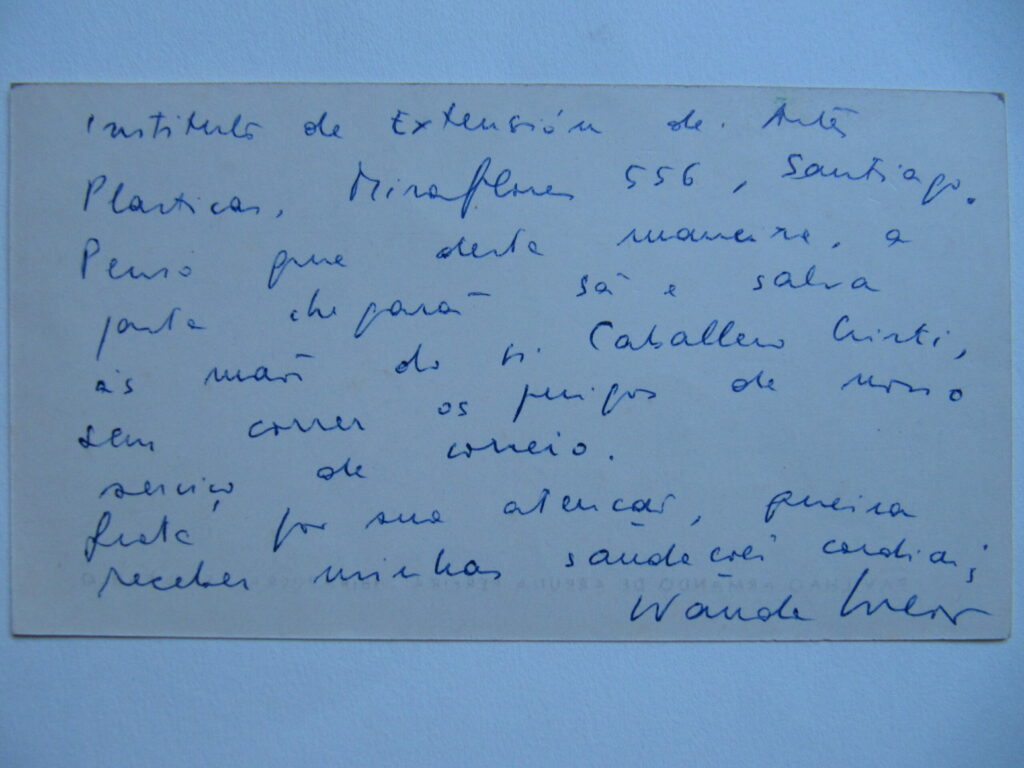 Instituto de Extensión de Artes
Plasticas, Miraflores 556, Santiago.
Penso que desta maneira, a
pasta chegará sã e salva
às mãos do sr. Caballero Cristi,
sem correr os perigos de nosso
serviço de correio.
Grata por sua atenção, queira
receber minhas saudações cordiais
Wanda Svevo
PAVILHÃO ARMANDO DE ARRUDA PEREIRA